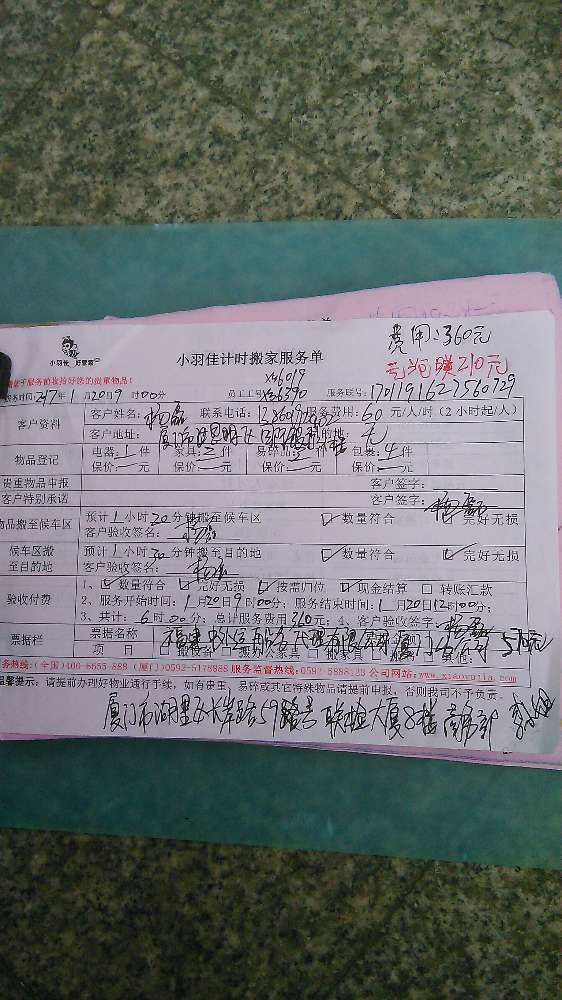 费用:360元
小羽佳 好管家
小羽佳计时搬家服务单
请在于服务前收拾好您的贵重物品!
xm6019
服务时间:2017年1月20日9时00分 员工工号:xm6390 服务联号:1701191627560729
客户资料
客户姓名:杨磊 联系电话: 服务费用:60元/人/时(2小时起/人)
客户地址: 厦门市思明区
物品登记
电器:1件 家具:2件 易碎品: 件 包装:4件
保价: 元 保价: 元 保价: 元 保价: 元
贵重物品申报 客户签字:
客户特别承诺 客户签字:杨磊
物品搬至候车区 预计1小时20分钟搬至候车区 数量符合 完好无损
客户验收签名:杨磊
候车区搬至目的地 预计1小时30分钟搬至目的地 数量符合 完好无损
客户验收签名:杨磊
验收付费
1、 数量符合 完好无损 按需归位 现金结算 转账汇款
2、服务开始时间:1月20日9时00分; 服务结束时间:1月20日12时00分;
3、共计:6时00分; 总计服务费用360元; 4、客户验收签字:杨磊
票据栏 票据名称 厦门分公司 570元
项 目 搬家具 其他:
服务热线:(全国)400-6555-888 (厦门)0592-5178888 服务监督热线:0592-5888-29 公司网站:www.xiaoyujia.com
温馨提示: 请提前办理好物业通行手续, 如有贵重、易碎或其它特殊物品请提前申报, 否则我司不予负责.
厦门市湖里区长岸路59号 联检大厦8楼 商务部